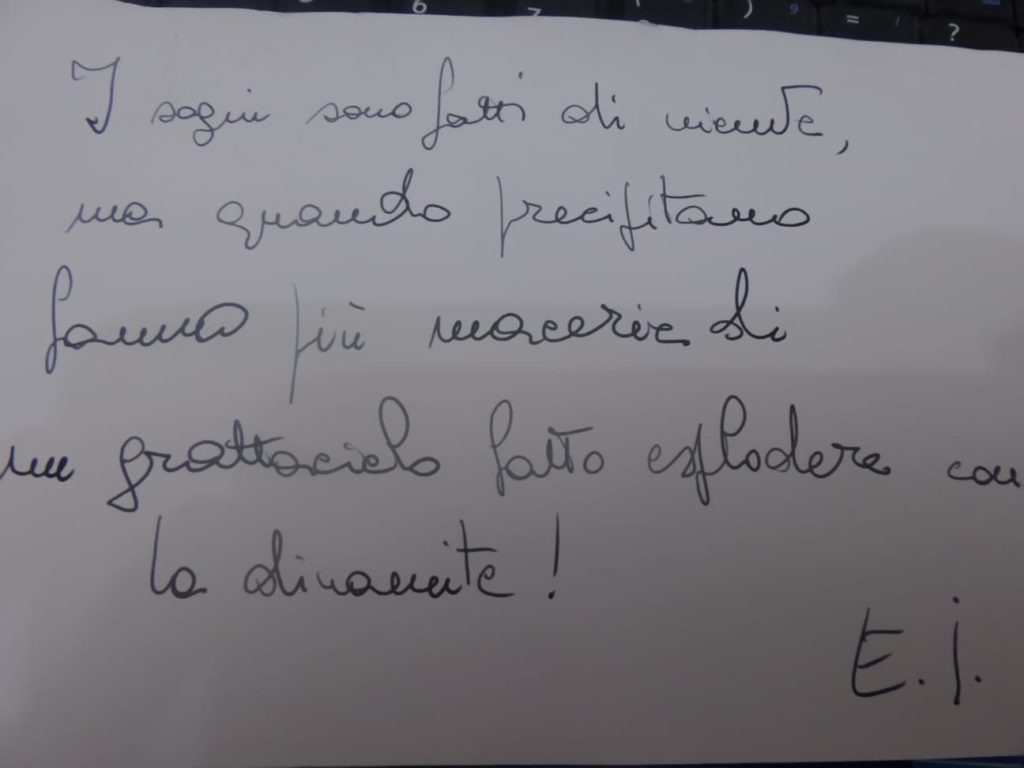 6 7 ( ) 9 = ?
I sogni sono fatti di niente,
ma quando precipitano
fanno più macerie di
un grattacielo fatto esplodere con
la dinamite!
E. J.